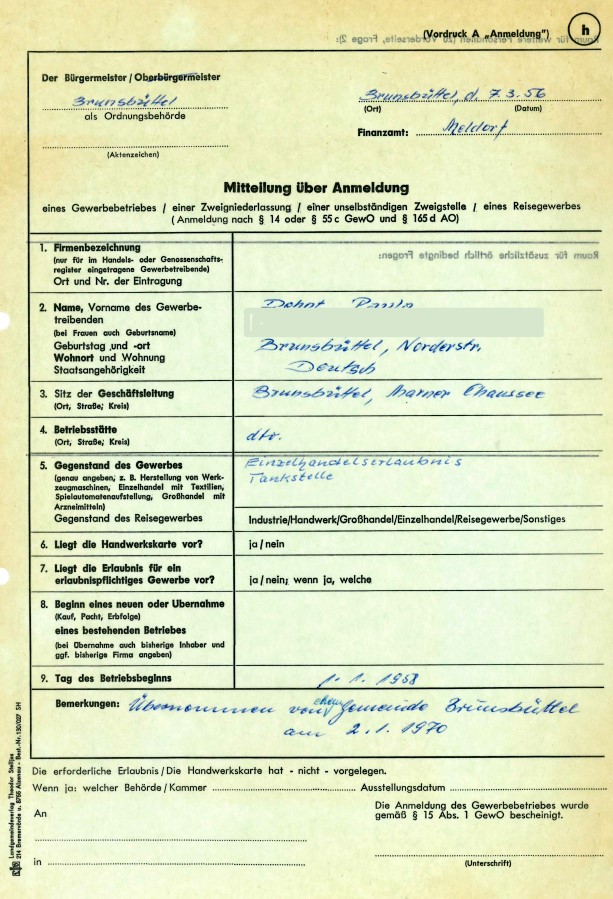 (Vordruck A „Anmeldung")
h
Raum für weitere Personalien (zu Vorderseite, Frage 2):
Der Bürgermeister / Oberbürgermeister
Brunsbüttel
als Ordnungsbehörde
(Aktenzeichen)
Brunsbüttel, d. 7.3.56
(Ort) (Datum)
Finanzamt: Meldorf
Mitteilung über Anmeldung
eines Gewerbebetriebes / einer Zweigniederlassung / einer unselbständigen Zweigstelle / eines Reisegewerbes
(Anmeldung nach § 14 oder § 55 c GewO und § 165 d AO)
Raum für zusätzliche örtlich bedingte Fragen:
1. Firmenbezeichnung
(nur für im Handels- oder Genossenschafts-
register eingetragene Gewerbetreibende)
Ort und Nr. der Eintragung
2. Name, Vorname des Gewerbe-
treibenden
(bei Frauen auch Geburtsname)
Geburtstag und -ort
Wohnort und Wohnung
Staatsangehörigkeit
Dohnt Paula
Brunsbüttel, Norderstr.
Deutsch
3. Sitz der Geschäftsleitung
(Ort, Straße; Kreis)
Brunsbüttel, Marner Chaussee
4. Betriebsstätte
(Ort, Straße; Kreis)
dto.
5. Gegenstand des Gewerbes
(genau angeben; z. B. Herstellung von Werk-
zeugmaschinen, Einzelhandel mit Textilien,
Spielautomatenaufstellung, Großhandel mit
Arzneimitteln)
Gegenstand des Reisegewerbes
Einzelhandelserlaubnis
Tankstelle
Industrie/Handwerk/Großhandel/Einzelhandel/Reisegewerbe/Sonstiges
6. Liegt die Handwerkskarte vor?
ja / nein
7. Liegt die Erlaubnis für ein
erlaubnispflichtiges Gewerbe vor?
ja / nein; wenn ja, welche
8. Beginn eines neuen oder Übernahme
(Kauf, Pacht, Erbfolge)
eines bestehenden Betriebes
(bei Übernahme auch bisherige Inhaber und
ggf. bisherige Firma angeben)
9. Tag des Betriebsbeginns
1. 1. 1958
Bemerkungen: Übernommen von ehem. Gemeinde Brunsbüttel
am 2.1.1970
Die erforderliche Erlaubnis / Die Handwerkskarte hat - nicht - vorgelegen.
Wenn ja: welcher Behörde / Kammer Ausstellungsdatum
An
in
Die Anmeldung des Gewerbebetriebes wurde
gemäß § 15 Abs. 1 GewO bescheinigt.
(Unterschrift)
Landgemeindeverlag Theodor Stelljes
214 Bremervörde u. 8755 Alzenau - Best.-Nr. 130/027 SH